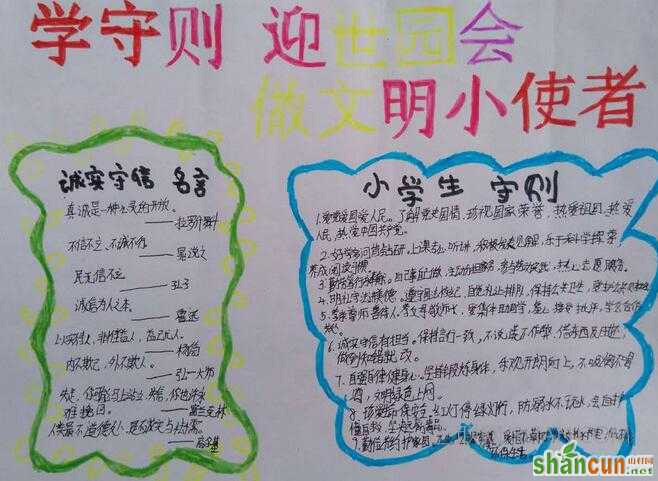 学守则 迎世园会
做文明小使者
诚实守信 名言
真诚是一种心灵的开放。
——拉罗什富科
不信不立、不诚不行。
——晁说之
民无信不立。
——孔子
诚信为人之本。
——鲁迅
——杨简
内不欺己,外不欺人。
——弘一大师
失足,你可能马上站立,失信,你也许永
难挽回。
——富兰克林
小学生 守则
1.爱党爱国爱人民。了解党史国情,珍视国家荣誉,热爱祖国,热爱
人民,热爱中国共产党。
2.好学多问肯钻研。上课专心听讲,积极发表见解,乐于科学探索,
养成阅读习惯。
3.勤劳笃行乐奉献。自己事自己做,主动分担家务,参与劳动实践,热心志愿服务。
4.明礼守法讲美德。遵守国法校纪,自觉礼让排队,保持公共卫生,爱护公共财物。
5.孝亲尊师善待人。孝父母敬师长,爱集体助同学,虚心接受批评,学会合作
共处。
6.诚实守信有担当。保持言行一致,不说谎不作弊,借东西及时还,
做到知错就改。
7.自强自律健身心。坚持锻炼身体,乐观开朗向上,不吸烟不喝
酒,文明绿色上网。
8.珍爱生命保安全。红灯停绿灯行,防溺水不玩火,会自护
懂求救,坚决远离毒品。
9.勤俭节约护家园。
shancun
山村网
.net